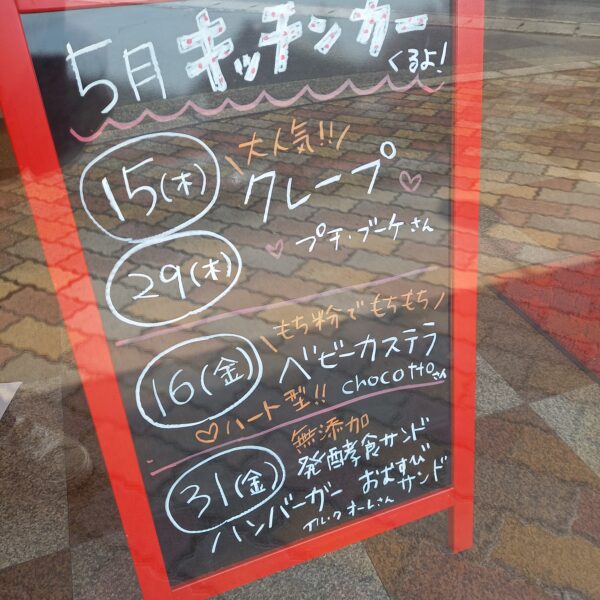 5月 キッチンカー
くるよ!
15(木) \大人気!!/
クレープ
29(木) プチ・ブーケさん
\もち粉でもちもち/
16(金) ベビーカステラ
ハート型!! chocottoさん
無添加
31(金) 発酵食サンド
ハンバーガー おむすびサンド